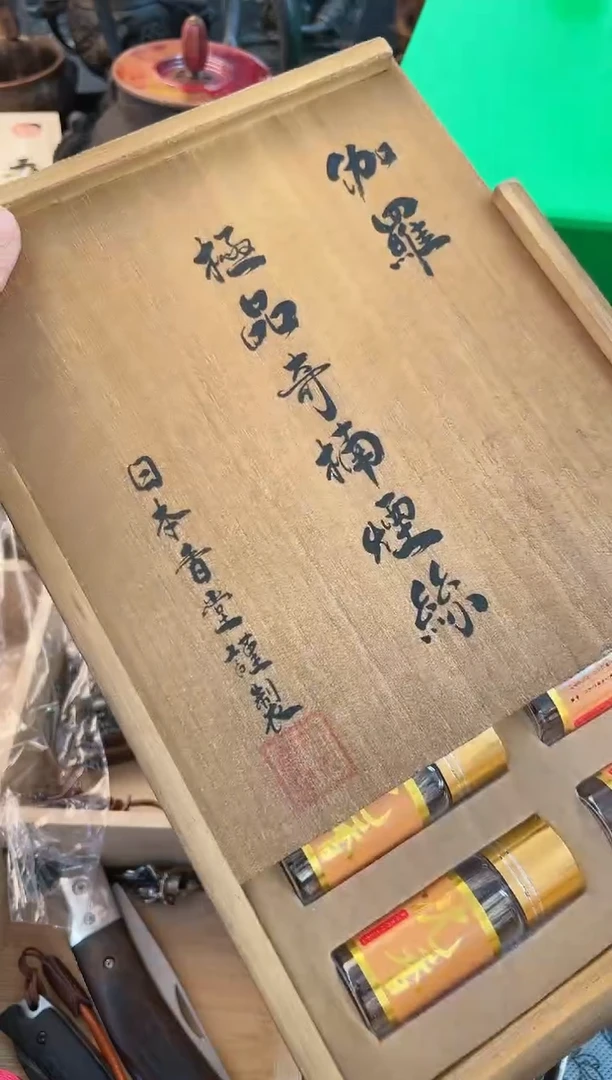 伽羅
極品奇楠煙絲
日本香堂謹製